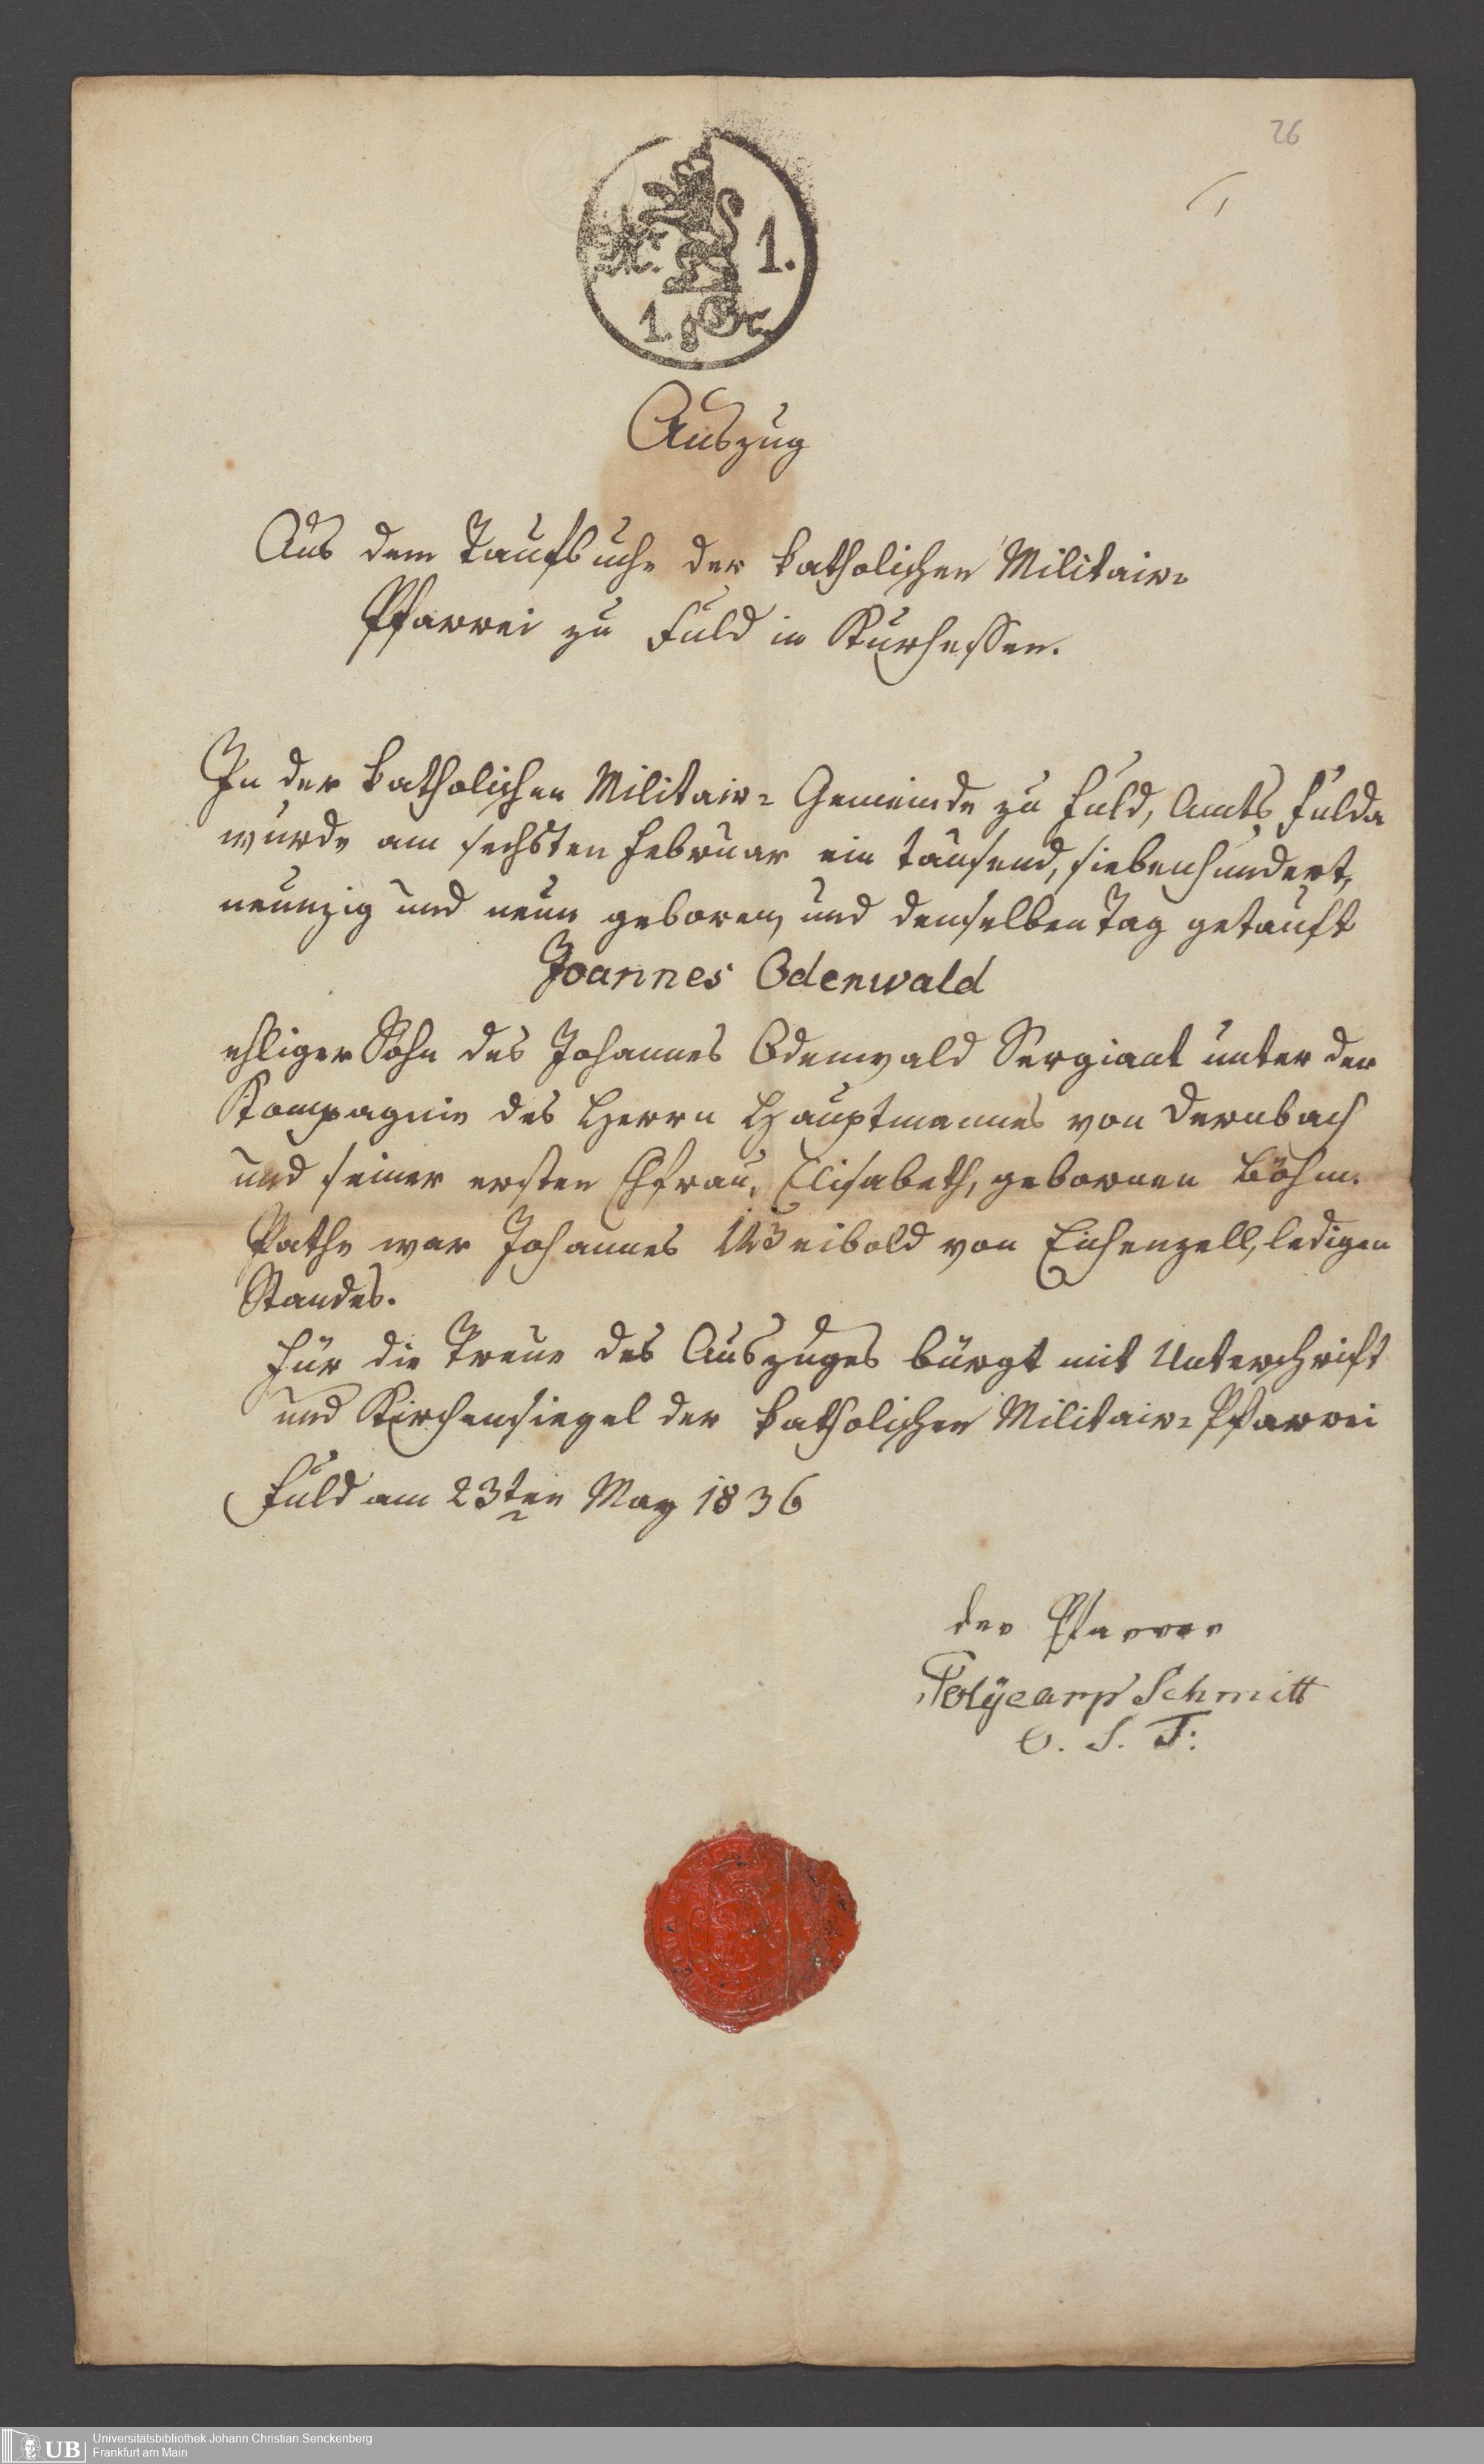 26
1.
1. gGr.
Auszug
Aus dem Taufbuche der katholischen Militair-
Pfarrei zu Fuld in Kurhessen.
In der katholischen Militair-Gemeinde zu Fuld, Amts Fulda
wurde am sechsten Februar ein tausend, siebenhundert,
neunzig und neun geboren, und demselben Tag getauft
Joannes Odenwald
ehliger Sohn des Johannes Odenwald Sergiant unter der
Kompagnie des Herrn Hauptmannes von Dernbach
und seiner ersten Ehfrau, Elisabeth, gebornen Böhm.
Pathe war Johannes Weibold von Eichenzell, ledigen
Standes.
Für die Treue des Auszuges bürgt mit Unterschrift
und Kirchensiegel der katholischen Militair-Pfarrei
Fuld am 23ten May 1836
der Pfarrer
Polÿcarp Schmitt
O. S. F:
UB
Universitätsbibliothek Johann Christian Senckenberg
Frankfurt am Main